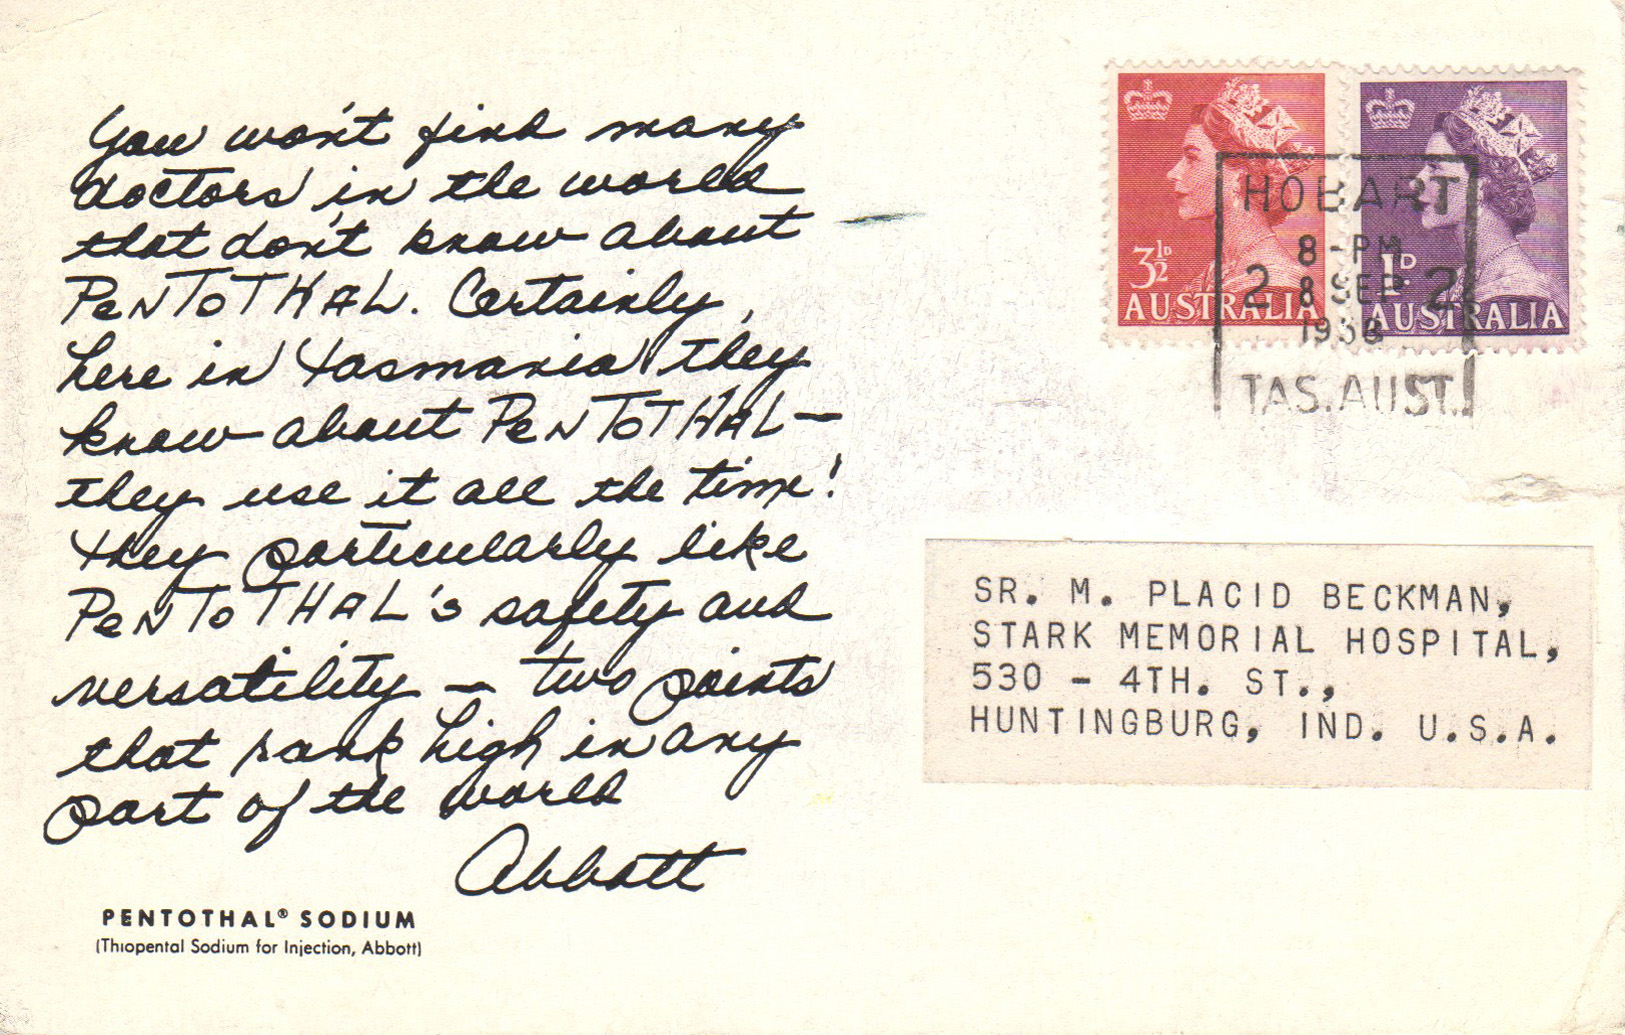 You won't find many
doctors in the world
that don't know about
PeNToTHAL. Certainly,
here in Tasmania they
know about PeNToTHAL—
they use it all the time!
They particularly like
PeNToTHAL's safety and
versatility — two points
that rank high in any
part of the world
Abbott
PENTOTHAL® SODIUM
(Thiopental Sodium for Injection, Abbott)
3½D
AUSTRALIA
1D
AUSTRALIA
HOBART
8-PM
2 8 SEP 2
TAS. AUST.
SR. M. PLACID BECKMAN,
STARK MEMORIAL HOSPITAL,
530 - 4TH. ST.,
HUNTINGBURG, IND. U.S.A.